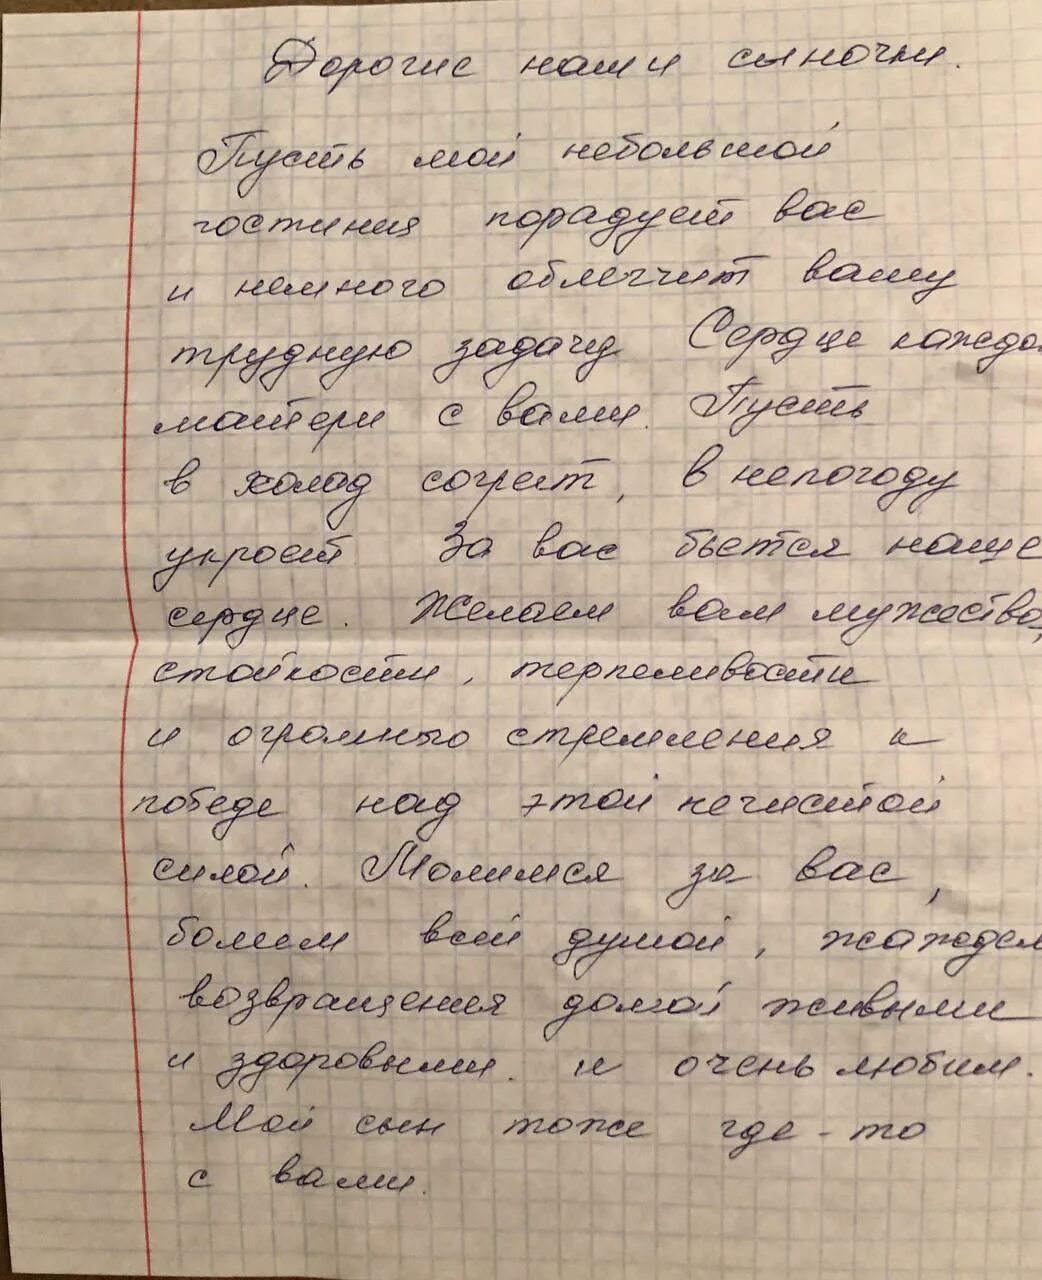 Дорогие наши сыночки.
Пусть мой небольшой
гостинец порадует вас
и немного облегчит вашу
трудную задачу. Сердце каждо
матери с вами. Пусть
в холод согреет, в непогоду
укроет. За вас бьется наше
сердце. Желаем вам мужества,
стойкости, терпеливости
и огромного стремления к
победе над этой нечистой
силой. Молимся за вас,
болеем всей душой, жаждем
возвращения домой живыми
и здоровыми. и очень любим.
Мой сын тоже где-то
с вами.